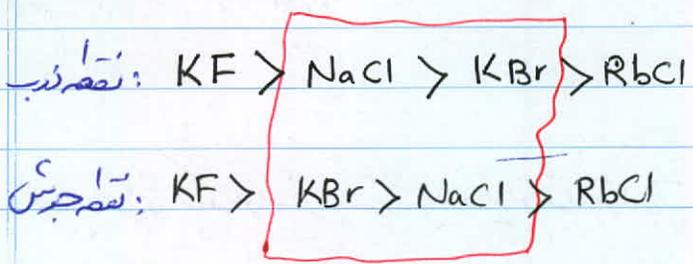 نقطه ذوب: KF > NaCl > KBr > RbCl
نقطه جوش: KF > KBr > NaCl > RbCl